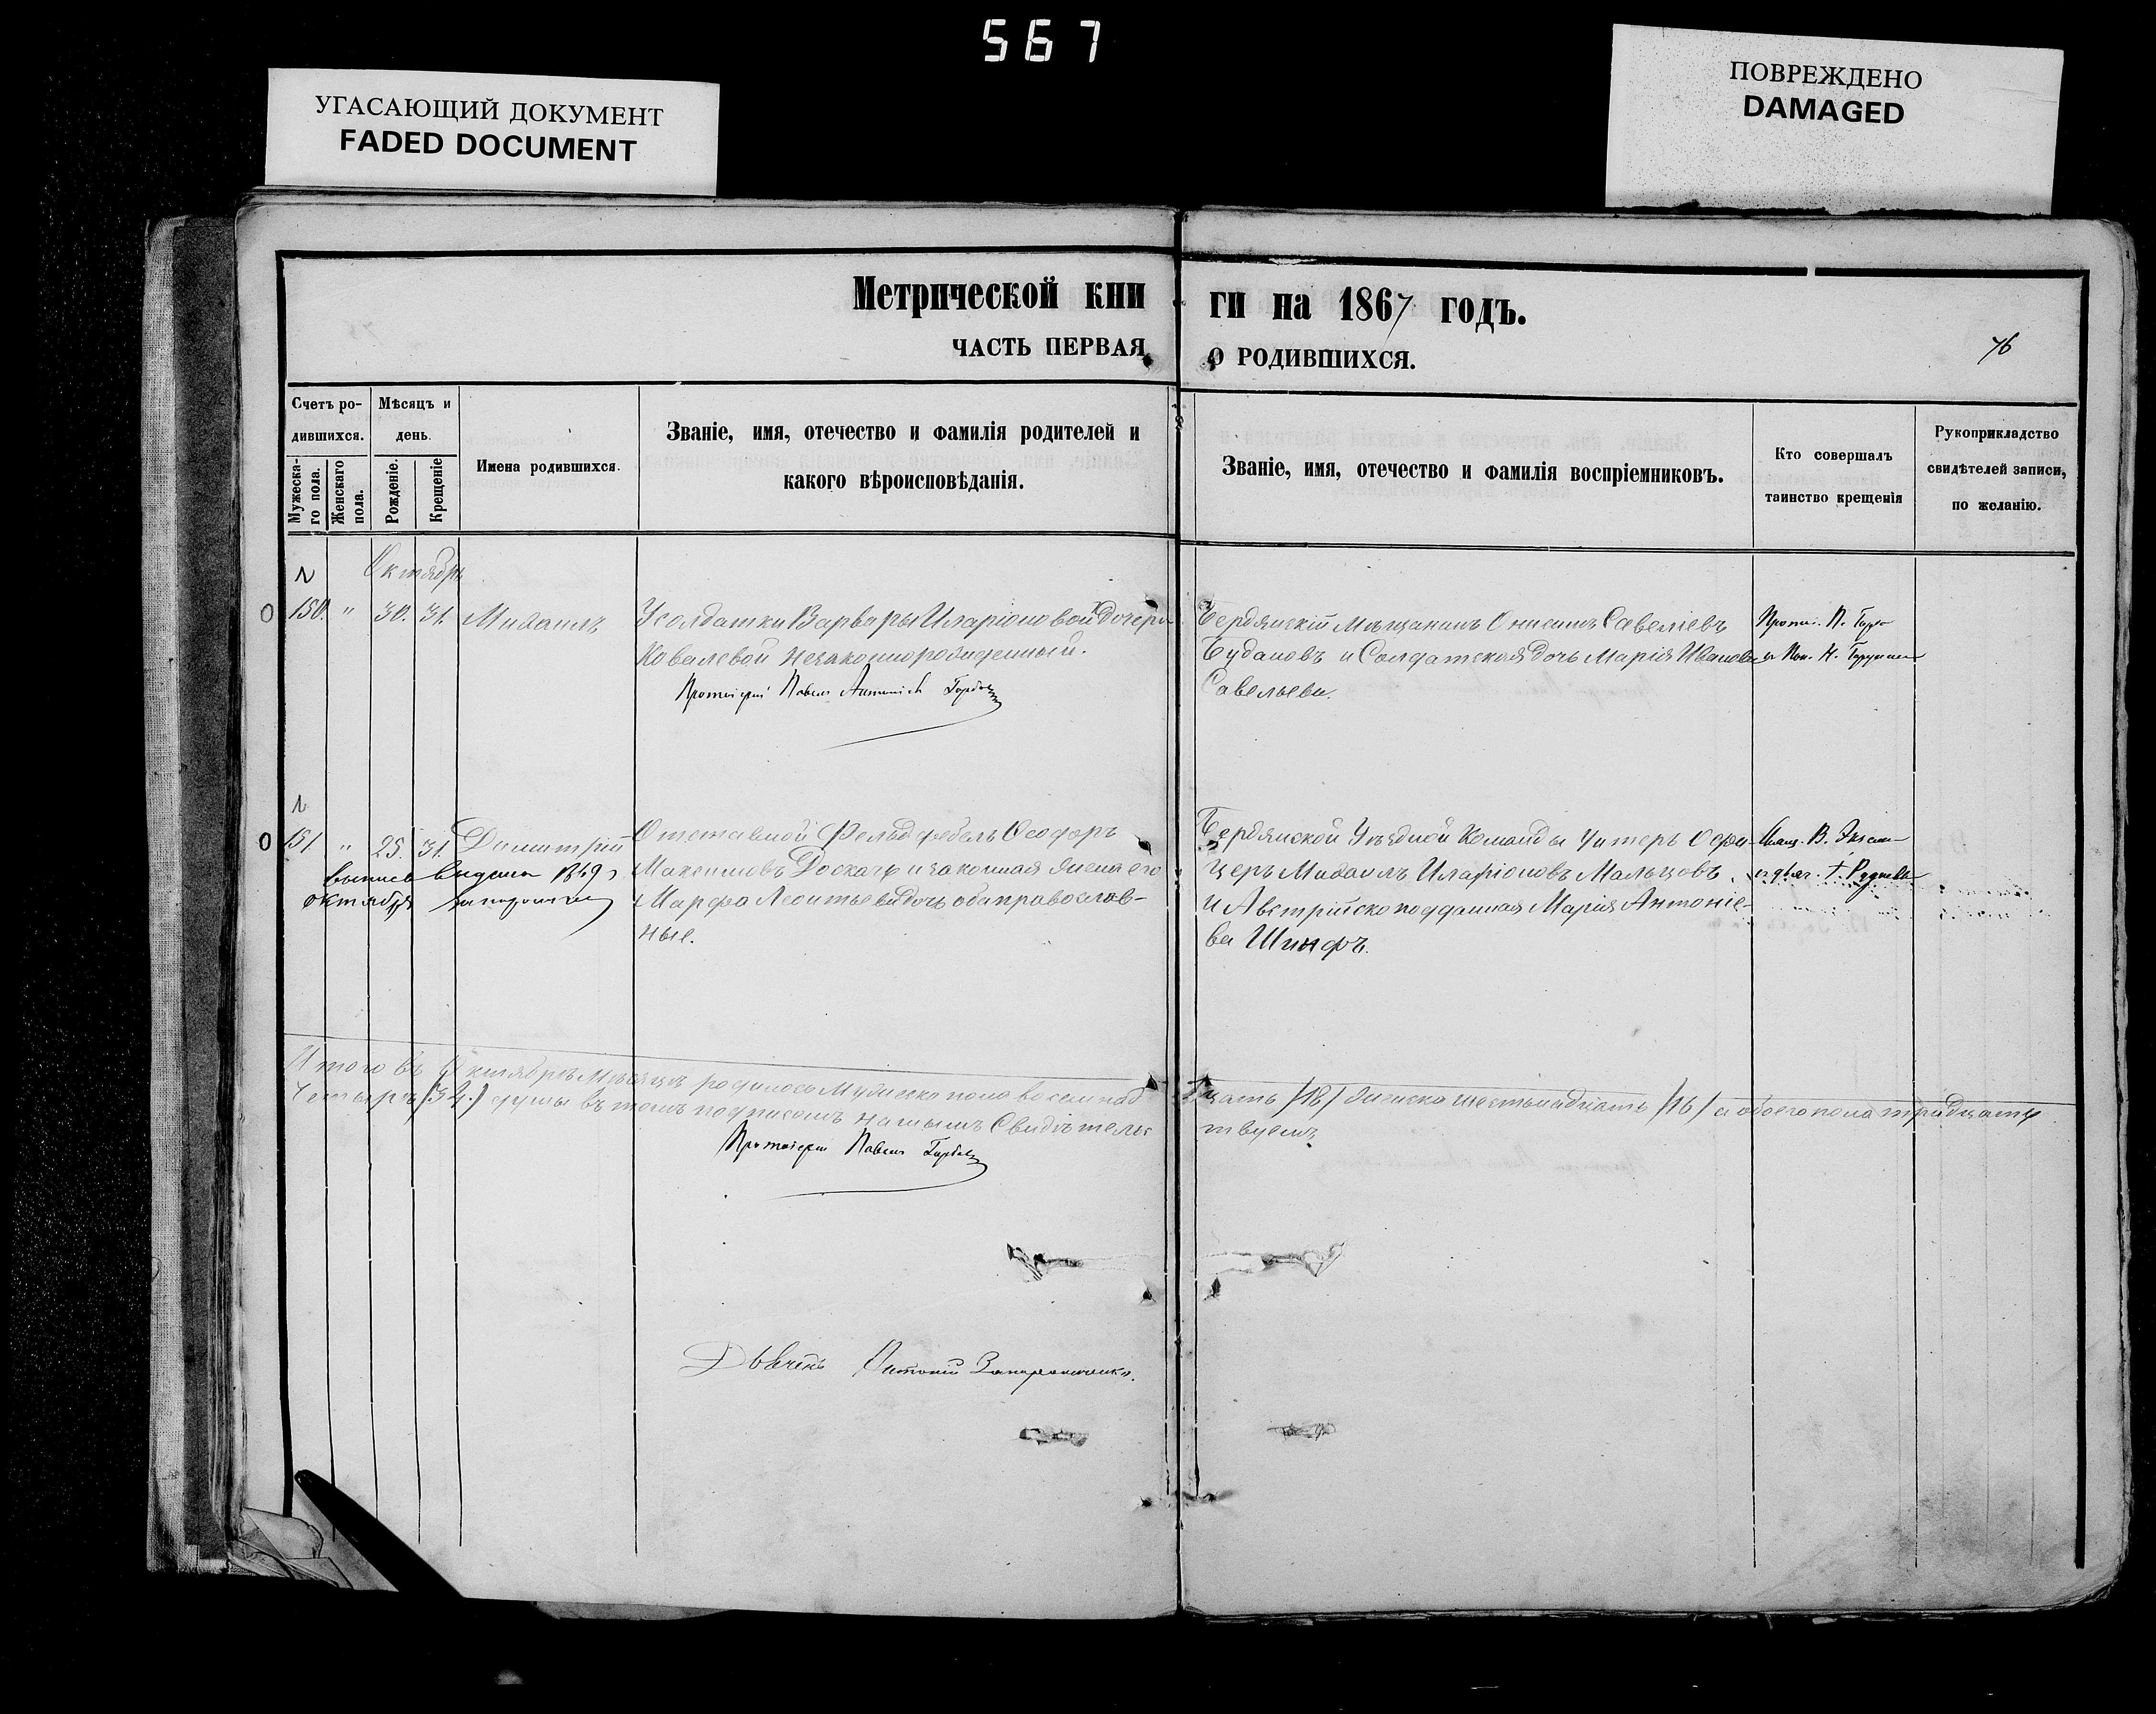 567
УГАСАЮЩИЙ ДОКУМЕНТ
FADED DOCUMENT
ПОВРЕЖДЕНО
DAMAGED
Метрической кни ги на 1867 годъ.
ЧАСТЬ ПЕРВАЯ О РОДИВШИХСЯ.
76
Счетъ ро-
дившихся.
Мужеска-
го пола.
Женскаго
пола.
Мѣсяцъ и
день.
Рожденіе.
Крещеніе
Имена родившихся.
Званіе, имя, отечество и фамилія родителей и
какого вѣроисповѣданія.
Званіе, имя, отечество и фамилія воспріемниковъ.
Кто совершалъ
таинство крещенія
Рукоприкладство
свидѣтелей записи,
по желанію.
Октябрь
150. " 30. 31. Михаилъ
У солдатки Варвары Иларіоновой дочери
Ковалевой незаконнорожденный.
Протоіерей Павелъ Горбов
Бердянскій Мѣщанинъ Онисимъ Савеліевъ
Будановъ и Солдатская дочь Марія Иванова
Савельева.
Протоі. П.
151. " 25. 31. Димитрій
выпись видана
октября
Отставной Фельдфебель Ѳеодоръ
Максимовъ Доскачь и законная жена его
Марфа Леонтьева дочь оба православ-
ные.
Бердянской Уѣздной Команды Унтеръ Офи-
церъ Михаилъ Иларіоновъ Мальцовъ
и Австрійско подданная Марія Антоніе-
ва Шинфъ.
Итого въ Октябрѣ мѣсяцѣ родилось Мужеско пола восемнад цать /18/ женска шестьнадцать /16/ а обоего пола тридцать
Четыре /34./ души въ томъ подписомъ нашымъ Свидѣтельс твуемъ
Протоіерей Павелъ
Дьячекъ Антоній